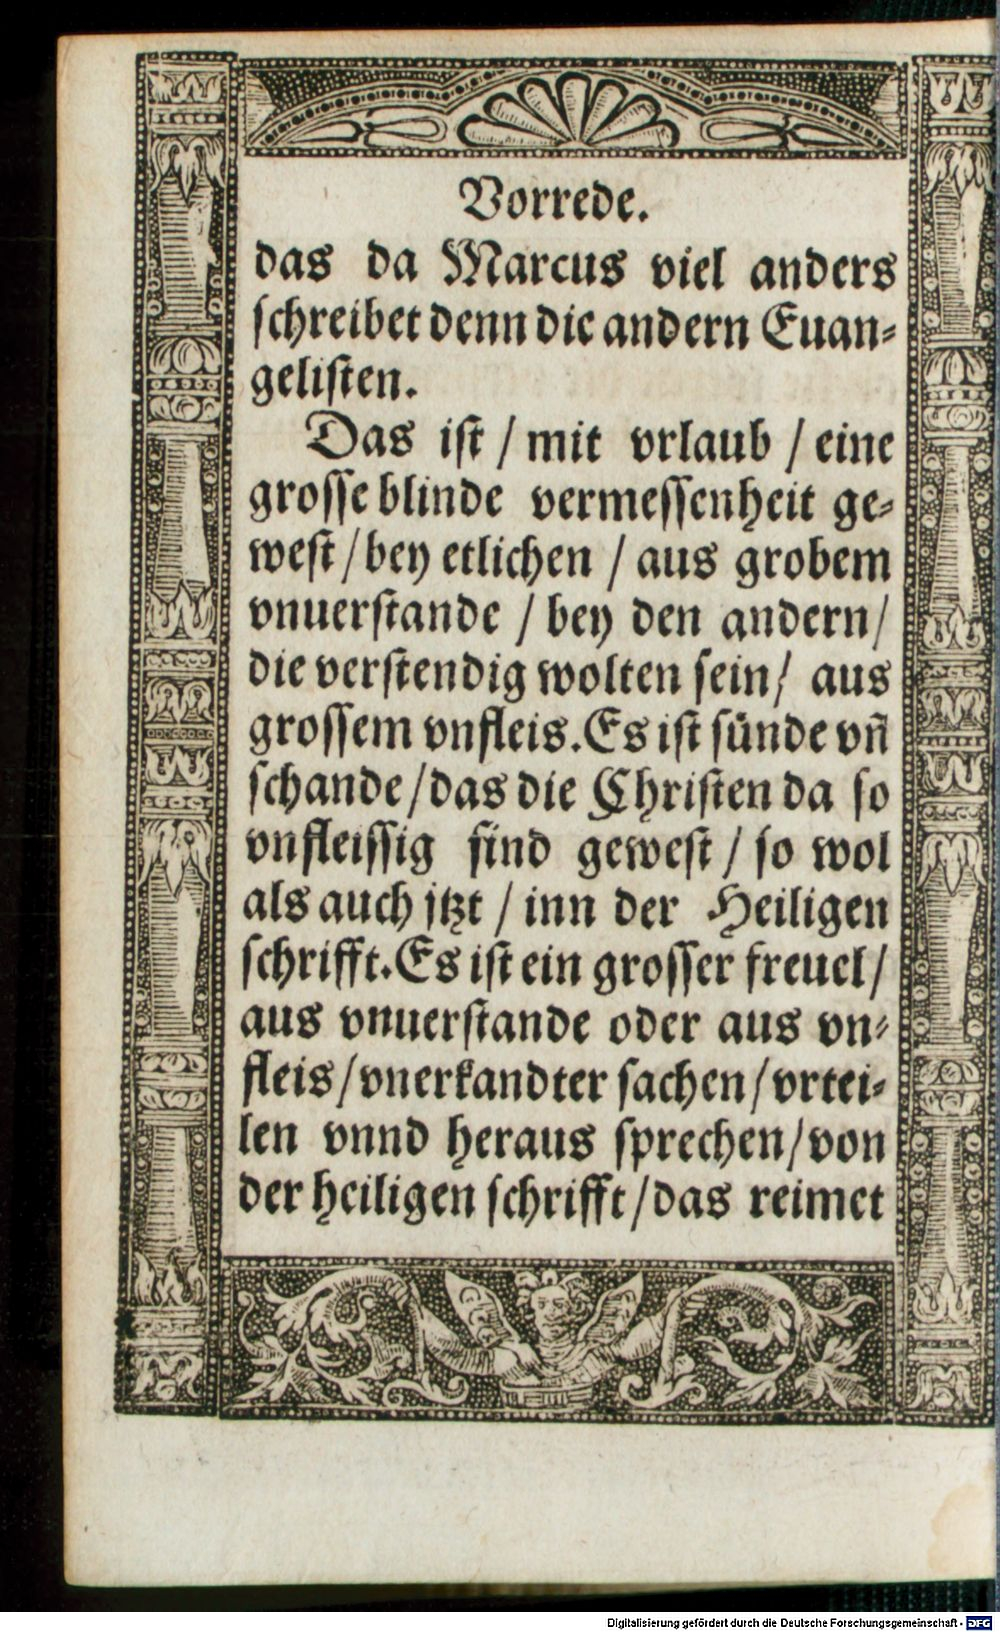 Vorrede.
das da Marcus viel anders
ſchreibet denn die andern Euan⸗
geliſten.
Das iſt / mit vrlaub / eine
groſſe blinde vermeſſenheit ge⸗
weſt / bey etlichen / aus grobem
vnuerſtande / bey den andern /
die verſtendig wolten ſein / aus
groſſem vnfleis. Es iſt ſünde vñ
ſchande / das die Chriſten da ſo
vnfleiſſig ſind geweſt / ſo wol
als auch jtzt / inn der Heiligen
ſchrifft. Es iſt ein groſſer freuel /
aus vnuerſtande oder aus vn⸗
fleis / vnerkandter ſachen / vrtei⸗
len vnnd heraus ſprechen / von
der heiligen ſchrifft / das reimet
Digitalisierung gefördert durch die Deutsche Forschungsgemeinschaft - DFG